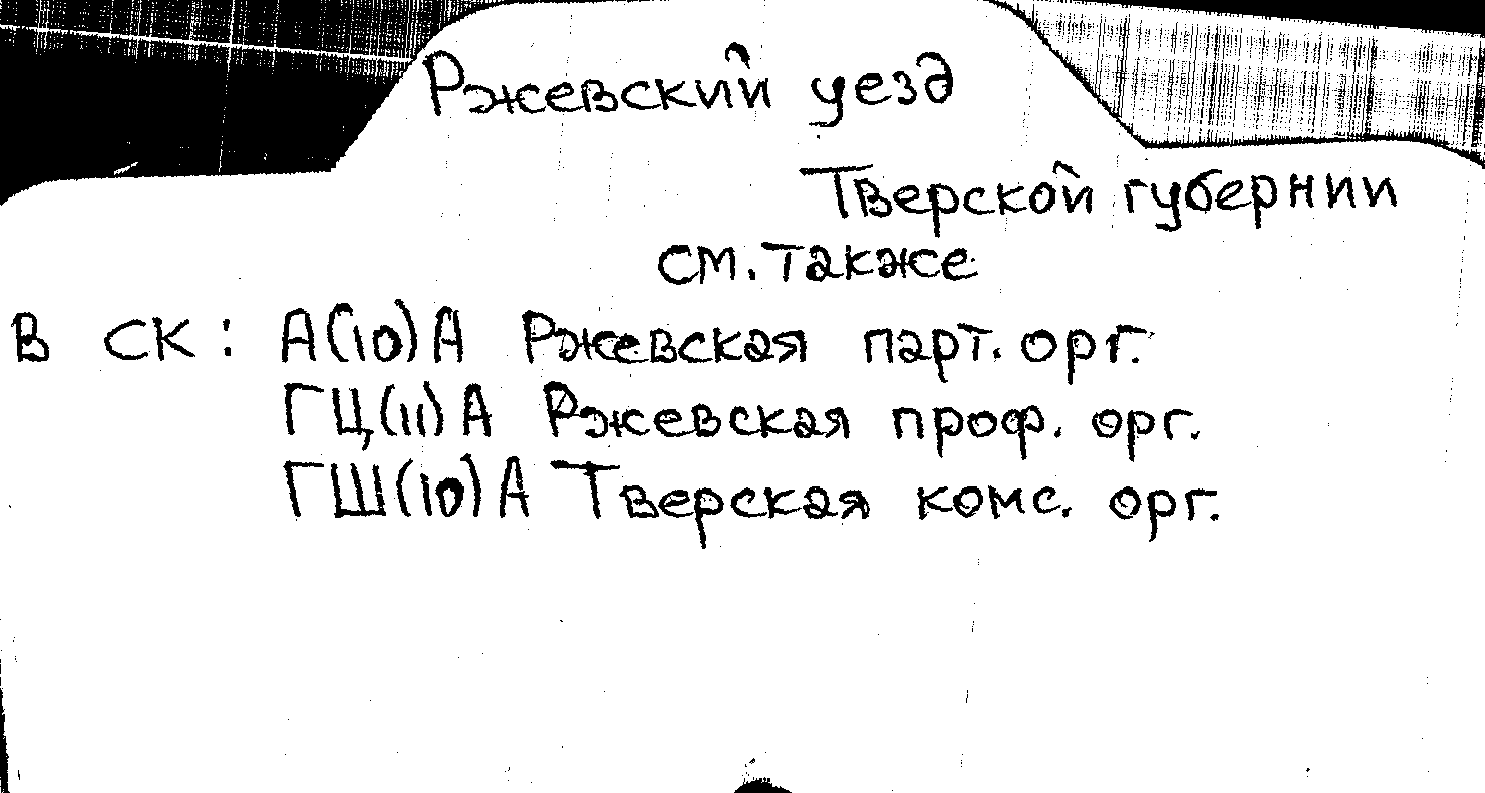 Ржевский уезд
Тверской губернии
см. также
В СК: А(10)А Ржевская парт. орг.
ГЦ(11)А Ржевская проф. орг.
ГШ(10)А Тверская комс. орг.